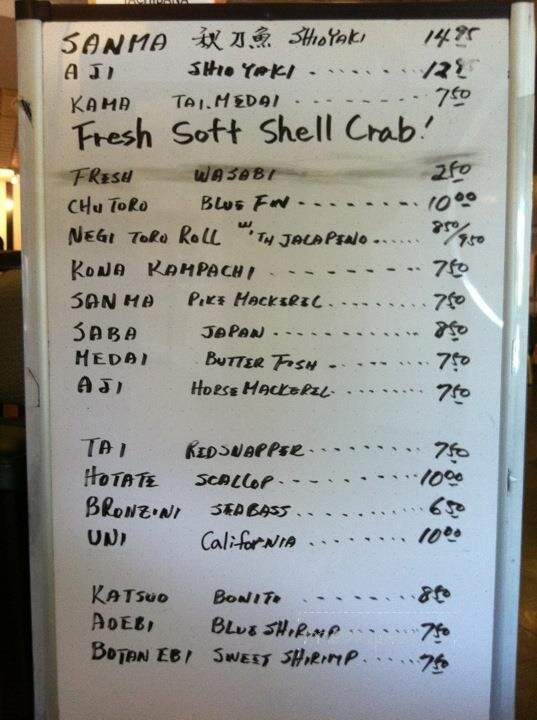 TACHIBANA
SANMA 秋刀魚 SHIOYAKI 14.95
AJI SHIO YAKI ....... 12.95
KAMA TAI.MEDAI ......... 7.50
Fresh Soft Shell Crab!
FRESH WASABI 2.50
CHUTORO BLUE FIN ......... 10.00
NEGI TORO ROLL W/TH JALAPENO ...... 8.50/9.50
KONA KAMPACHI ......... 7.50
SANMA PIKE MACKEREL ........ 7.50
SABA JAPAN ........... 8.50
MEDAI BUTTER FISH ......... 7.50
AJI HORSE MACKEREL ........ 7.50
TAI REDSNAPPER ......... 7.50
HOTATE SCALLOP .......... 10.00
BRONZINI SEABASS ......... 6.50
UNI CaliforNIA ......... 10.00
KATSUO BONITO ........... 8.50
AOEBI BLUE SHIRIMP ....... 7.50
BOTAN EBI SWEET SHIRIMP ..... 7.50